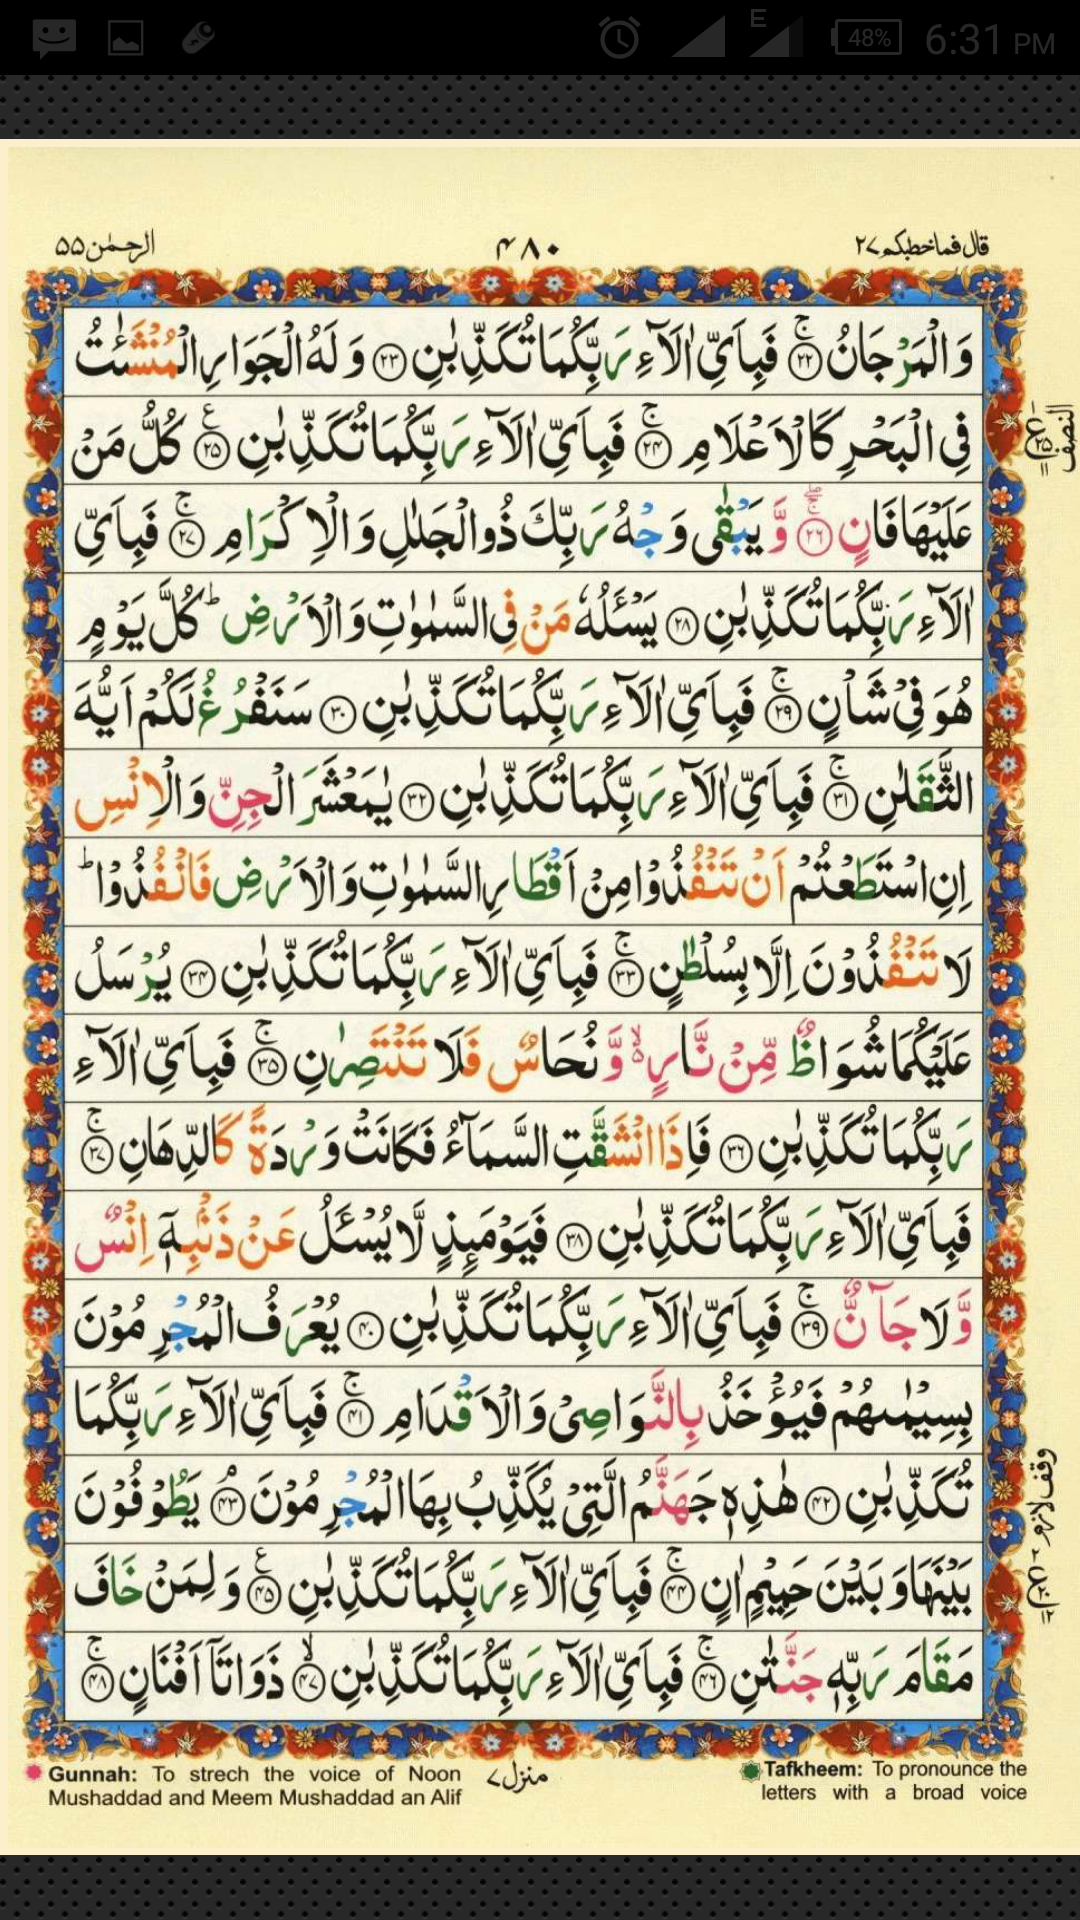 6:31 PM
48%
E
الرحمٰن ۵۵
۴۸۰
قال فماخطبکم ۲۷
وَالْمَرْجَانُ ۚ﴿۲۲﴾ فَبِاَیِّ اٰلَآءِ رَبِّکُمَا تُکَذِّبٰنِ ﴿۲۳﴾ وَلَهُ الْجَوَارِ الْمُنْشَئٰتُ
فِی الْبَحْرِ کَالْاَعْلَامِ ۚ﴿۲۴﴾ فَبِاَیِّ اٰلَآءِ رَبِّکُمَا تُکَذِّبٰنِ ﴿۲۵﴾ ع کُلُّ مَنْ
عَلَیْهَا فَانٍ ۚۖ﴿۲۶﴾ وَّیَبْقٰی وَجْهُ رَبِّكَ ذُو الْجَلٰلِ وَالْاِکْرَامِ ۚ﴿۲۷﴾ فَبِاَیِّ
اٰلَآءِ رَبِّکُمَا تُکَذِّبٰنِ ﴿۲۸﴾ یَسْـَٔلُهٗ مَنْ فِی السَّمٰوٰتِ وَالْاَرْضِ ؕ کُلَّ یَوْمٍ
هُوَ فِیْ شَاْنٍ ۚ﴿۲۹﴾ فَبِاَیِّ اٰلَآءِ رَبِّکُمَا تُکَذِّبٰنِ ﴿۳۰﴾ سَنَفْرُغُ لَکُمْ اَیُّهَ
الثَّقَلٰنِ ۚ﴿۳۱﴾ فَبِاَیِّ اٰلَآءِ رَبِّکُمَا تُکَذِّبٰنِ ﴿۳۲﴾ یٰمَعْشَرَ الْجِنِّ وَالْاِنْسِ
اِنِ اسْتَطَعْتُمْ اَنْ تَنْفُذُوْا مِنْ اَقْطَارِ السَّمٰوٰتِ وَالْاَرْضِ فَانْفُذُوْا ؕ
لَا تَنْفُذُوْنَ اِلَّا بِسُلْطٰنٍ ۚ﴿۳۳﴾ فَبِاَیِّ اٰلَآءِ رَبِّکُمَا تُکَذِّبٰنِ ﴿۳۴﴾ یُرْسَلُ
عَلَیْکُمَا شُوَاظٌ مِّنْ نَّارٍ ۬ۙ وَّنُحَاسٌ فَلَا تَنْتَصِرٰنِ ۚ﴿۳۵﴾ فَبِاَیِّ اٰلَآءِ
رَبِّکُمَا تُکَذِّبٰنِ ﴿۳۶﴾ فَاِذَا انْشَقَّتِ السَّمَآءُ فَکَانَتْ وَرْدَةً کَالدِّهَانِ ۚ﴿۳۷﴾
فَبِاَیِّ اٰلَآءِ رَبِّکُمَا تُکَذِّبٰنِ ﴿۳۸﴾ فَیَوْمَئِذٍ لَّا یُسْـَٔلُ عَنْ ذَنْۢبِهٖۤ اِنْسٌ
وَّلَا جَآنٌّ ۚ﴿۳۹﴾ فَبِاَیِّ اٰلَآءِ رَبِّکُمَا تُکَذِّبٰنِ ﴿۴۰﴾ یُعْرَفُ الْمُجْرِمُوْنَ
بِسِیْمٰىهُمْ فَیُؤْخَذُ بِالنَّوَاصِیْ وَالْاَقْدَامِ ۚ﴿۴۱﴾ فَبِاَیِّ اٰلَآءِ رَبِّکُمَا
تُکَذِّبٰنِ ﴿۴۲﴾ هٰذِهٖ جَهَنَّمُ الَّتِیْ یُکَذِّبُ بِهَا الْمُجْرِمُوْنَ ۘ﴿۴۳﴾ یَطُوْفُوْنَ
بَیْنَهَا وَبَیْنَ حَمِیْمٍ اٰنٍ ۚ﴿۴۴﴾ فَبِاَیِّ اٰلَآءِ رَبِّکُمَا تُکَذِّبٰنِ ﴿۴۵﴾ ع وَلِمَنْ خَافَ
مَقَامَ رَبِّهٖ جَنَّتٰنِ ۚ﴿۴۶﴾ فَبِاَیِّ اٰلَآءِ رَبِّکُمَا تُکَذِّبٰنِ ۙ﴿۴۷﴾ ذَوَاتَاۤ اَفْنَانٍ ۚ﴿۴۸﴾
النصف
وقف لازم
منزل ۷
Gunnah: To strech the voice of Noon
Mushaddad and Meem Mushaddad an Alif
Tafkheem: To pronounce the
letters with a broad voice